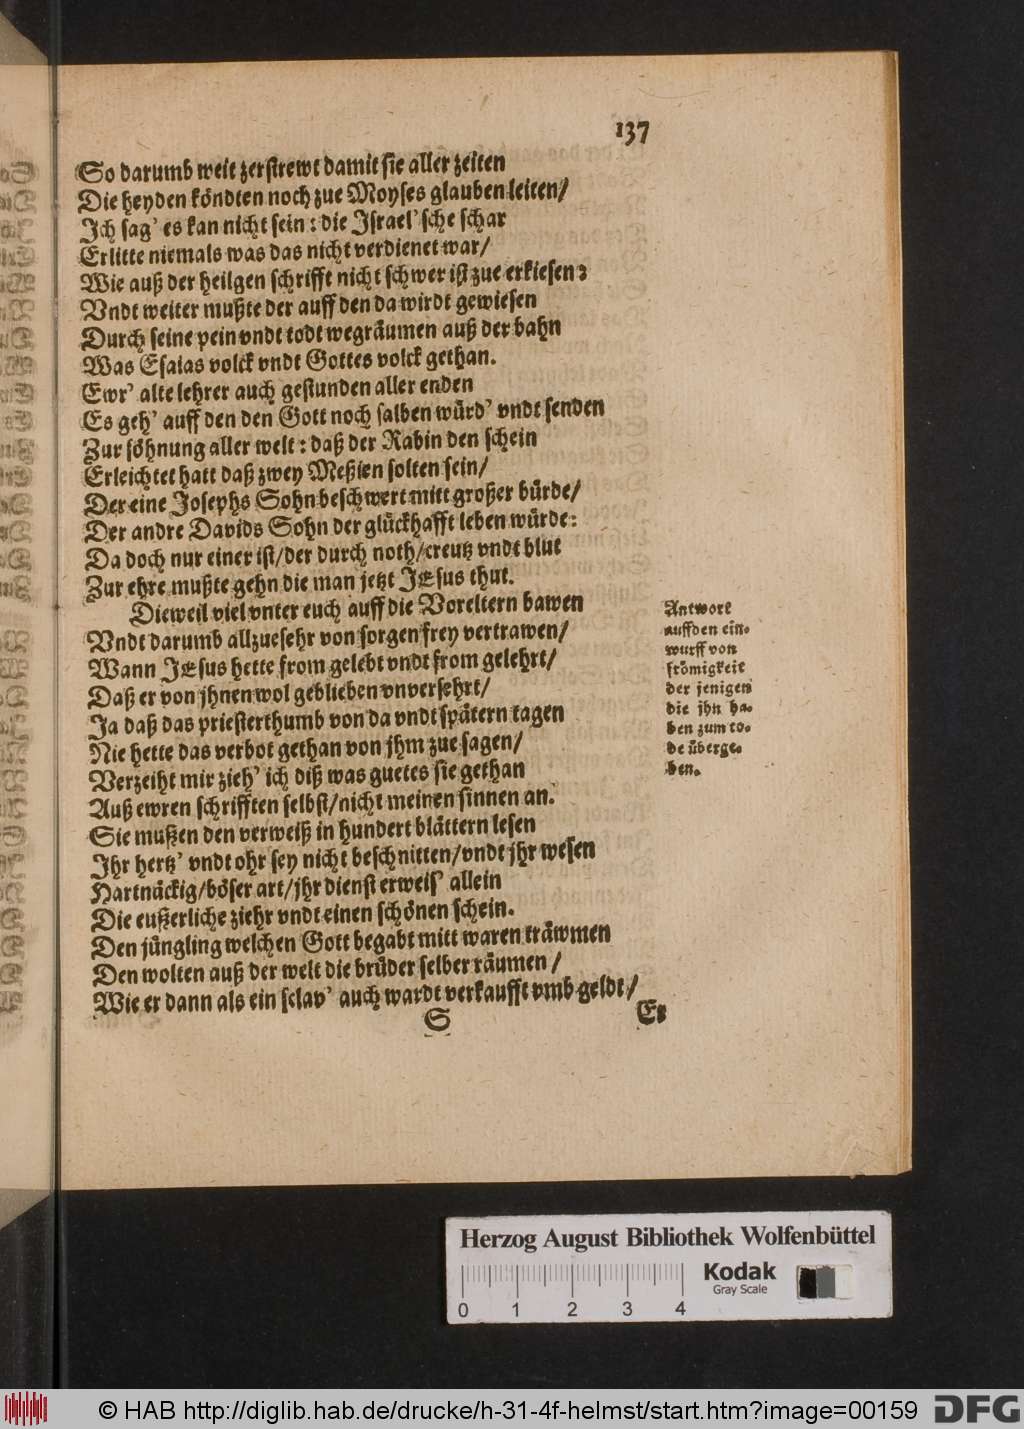 137
So darumb weit zerstrewt damit sie aller zeiten
Die heyden köndten noch zue Moyses glauben leiten/
Ich sag' es kan nicht sein : die Israel'sche schar
Erlitte niemals was das nicht verdienet war/
Wie auß der heilgen schrifft nicht schwer ist zue erkiesen?
Vndt weiter mußte der auff den da wirdt gewiesen
Durch seine pein vndt todt wegräumen auß der bahn
Was Esaias volck vndt Gottes volck gethan.
Ewr' alte lehrer auch gestunden aller enden
Es geh' auff den den Gott noch salben würd' vndt senden
Zur söhnung aller welt : daß der Rabin den schein
Erleichtet hatt daß zwey Meßien solten sein/
Der eine Josephs Sohn beschwert mitt großer bürde/
Der andre Davids Sohn der glückhafft leben würde:
Da doch nur einer ist/der durch noth/creutz vndt blut
Zur ehre mußte gehn die man jetzt JEsus thut.
Dieweil viel vnter euch auff die Voreltern bawen
Vndt darumb allzuesehr von sorgen frey vertrawen/
Wann JEsus hette from gelebt vndt from gelehrt/
Daß er von jhnen wol geblieben vnversehrt/
Ja daß das priesterthumb von da vndt spätern tagen
Nie hette das verbot gethan von jhm zue sagen/
Verzeiht mir zieh' ich diß was guetes sie gethan
Auß ewren schrifften selbst/nicht meinen sinnen an.
Sie mußen den verweiß in hundert blättern lesen
Ihr hertz' vndt ohr sey nicht beschnitten/vndt jhr wesen
Hartnäckig/böser art/jhr dienst erweis' allein
Die eußerliche ziehr vndt einen schönen schein.
Den jüngling welchen Gott begabt mitt waren träwmen
Den wolten auß der welt die brüder selber räumen /
Wie er dann als ein sclav' auch wardt verkaufft vmb geldt/
S
Er
Antwort
auff den ein-
wurff von
frömigkeit
der jenigen
die jhn ha-
ben zum to-
de überge-
ben.
Herzog August Bibliothek Wolfenbüttel
Kodak
Gray Scale
0 1 2 3 4
© HAB http://diglib.hab.de/drucke/h-31-4f-helmst/start.htm?image=00159
DFG